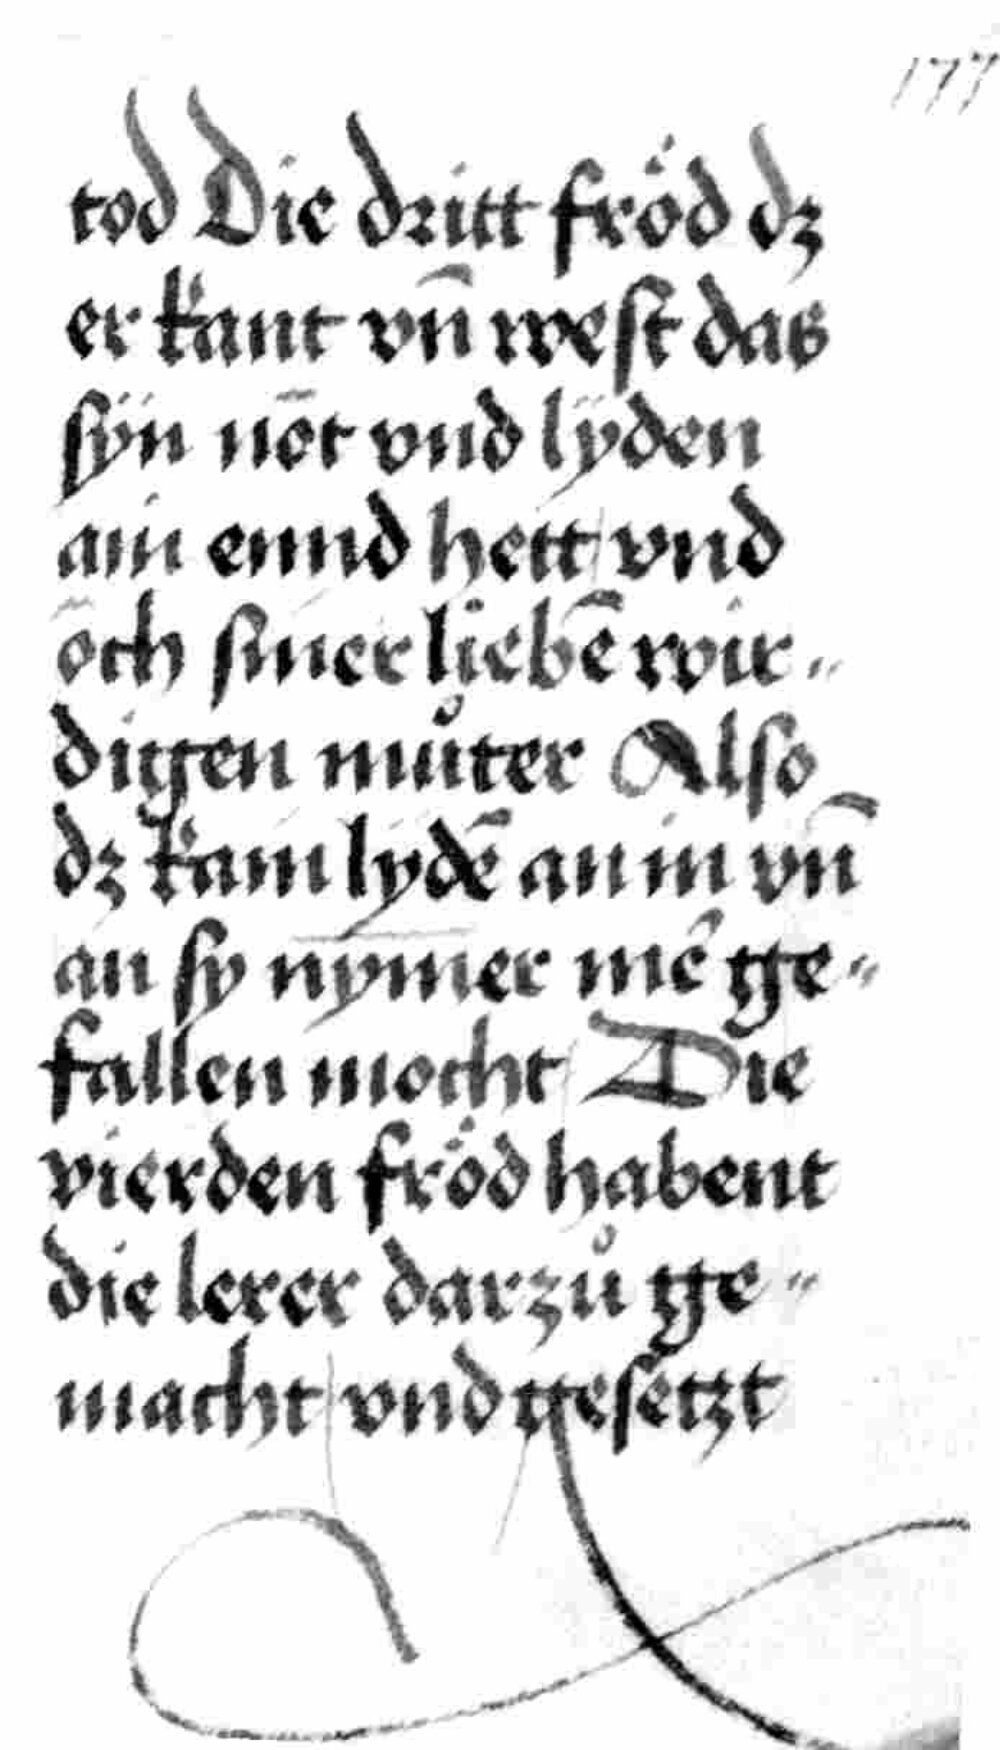 177
tod Die dritt fröd dz
er kant vn̄ west das
sÿn nōt vnd lÿden
ain ennd hett vnd
ōch siner liebē wir„
digen můter Also
dz kain lydē an in vn̄
an sy nymer mē ge„
fallen mocht Die
vierden fröd habent
die lerer darzů ge„
macht vnd gesetzt